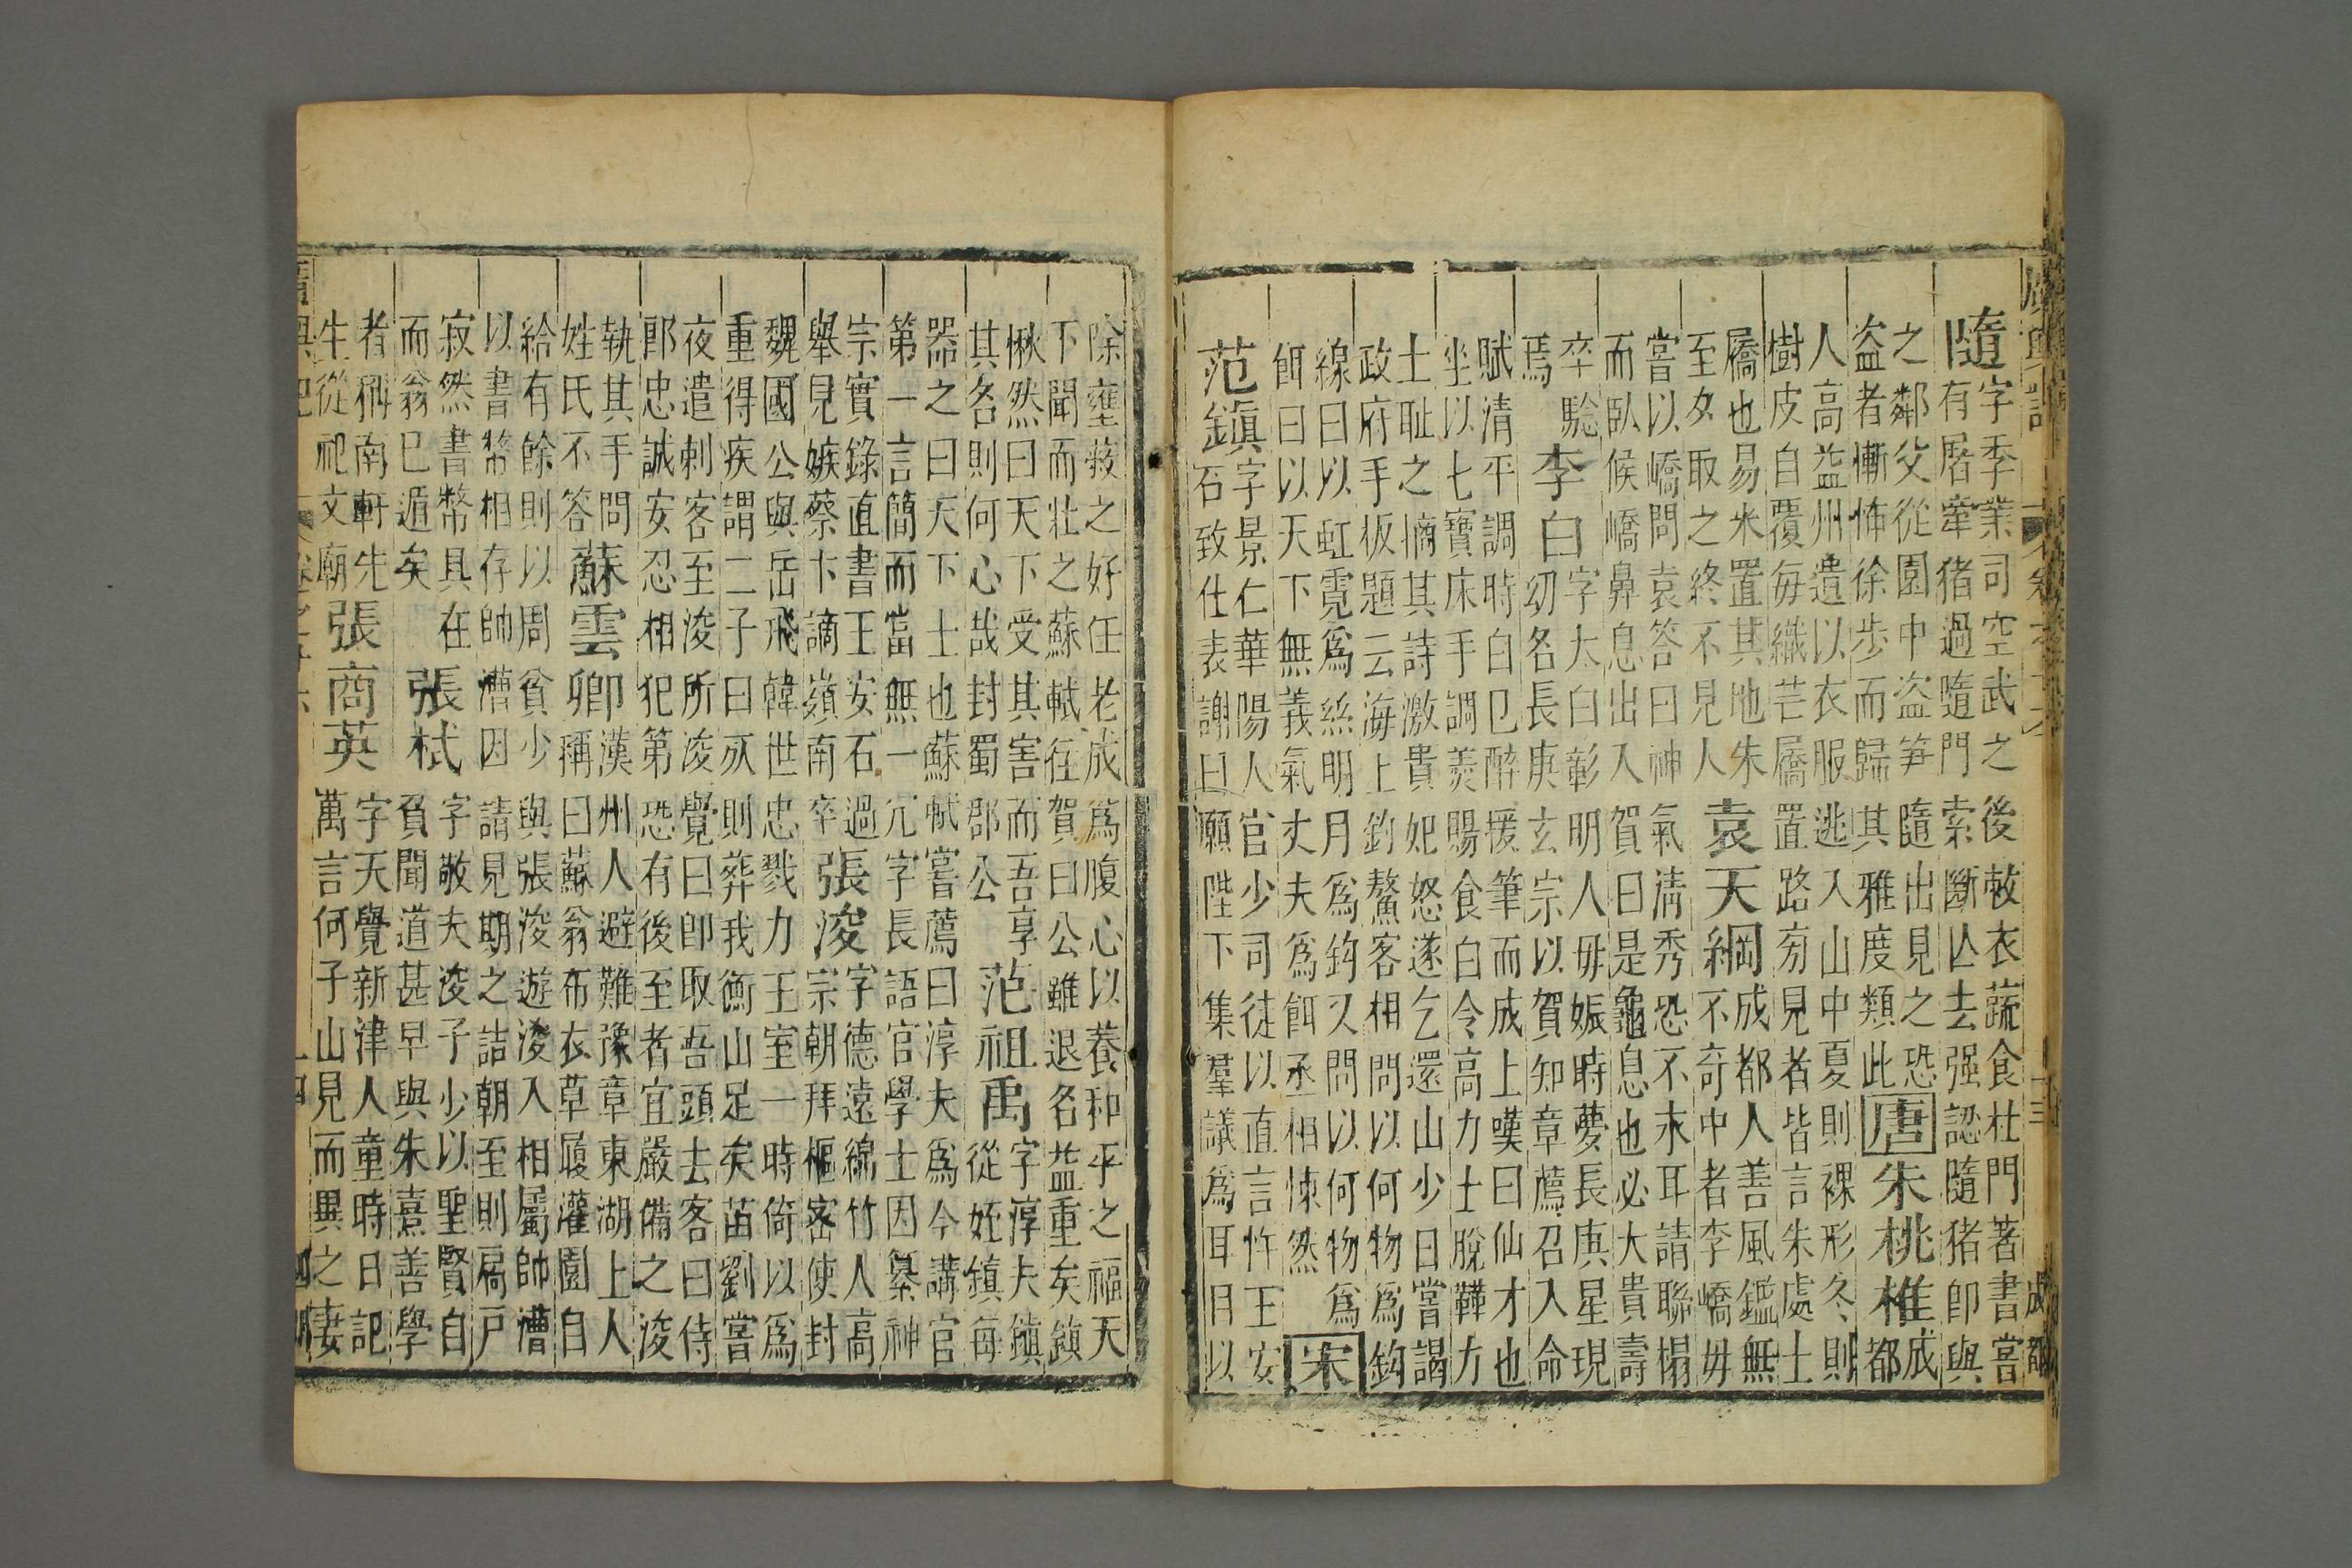 隨
字季業司空武之後敝衣蔬食杜門著書嘗
有屠牽猪過隨門索斷亾去强認隨猪即與
之鄰父從園中盜笋隨出見之恐
盜者慚怖徐步而歸其雅度類此
唐
朱桃椎
成
都
人高益州遺以衣服逃入山中夏則裸形冬則
樹皮自覆每織芒屩置路旁見者皆言朱處士
屩也易米置其地朱
至夕取之終不見人
袁天綱
成都人善風鑑無
不奇中者李嶠毋
嘗以嶠問袁答曰神氣清秀恐不永耳請聯榻
而臥候嶠鼻息出入賀曰是龜息也必大貴壽
卒驗
焉
李白
字太白彰明人毋娠時夢長庚星現
幼名長庚玄宗以賀知章薦召入命
賦清平調時白已醉援筆而成上嘆曰仙才也
坐以七寶床手調羮賜食白令高力士脫鞾力
士耻之摘其詩激貴妃怒遂乞還山少日嘗謁
政府手板題云海上釣鰲客相問以何物爲鈎
線曰以虹霓爲絲明月爲鈎又問以何物爲
餌曰以天下無義氣丈夫爲餌丞相悚然
宋
范鎮
字景仁華陽人官少司徒以直言忤王安
石致仕表謝曰願陛下集羣議爲耳目以
除壅蔽之好任老成爲腹心以養和平之福天
下聞而壯之蘇軾往賀曰公雖退名益重矣鎮
愀然曰天下受其害而吾享
其名則何心哉封蜀郡公
范祖禹
字淳夫鎮
從姪鎮每
器之曰天下士也蘇軾嘗薦曰淳夫爲今講官
第一言簡而當無一冗字長語官學士因纂神
宗實錄直書王安石過
舉見嫉蔡卞謫嶺南卒
張浚
字德遠綿竹人高
宗朝拜樞密使封
魏國公與岳飛韓世忠戮力王室一時倚以爲
重得疾謂二子曰死則葬我衡山足矣苗劉嘗
夜遣刺客至浚所浚覺曰即取吾頭去客曰侍
郎忠誠安忍相犯第恐有後至者宜嚴備之浚
執其手問
姓氏不答
蘇雲卿
漢州人避難豫章東湖上人
稱曰蘇翁布衣草履灌園自
給有餘則以周貧少與張浚遊浚入相屬帥漕
以書幣相存帥漕因請見期之詰朝至則扃戸
寂然書幣具在
而翁已遁矣
張栻
字敬夫浚子少以聖賢自
負聞道甚早與朱熹善學
者稱南軒先
生從祀文廟
張商英
字天覺新津人童時日記
萬言何子山見而異之妻